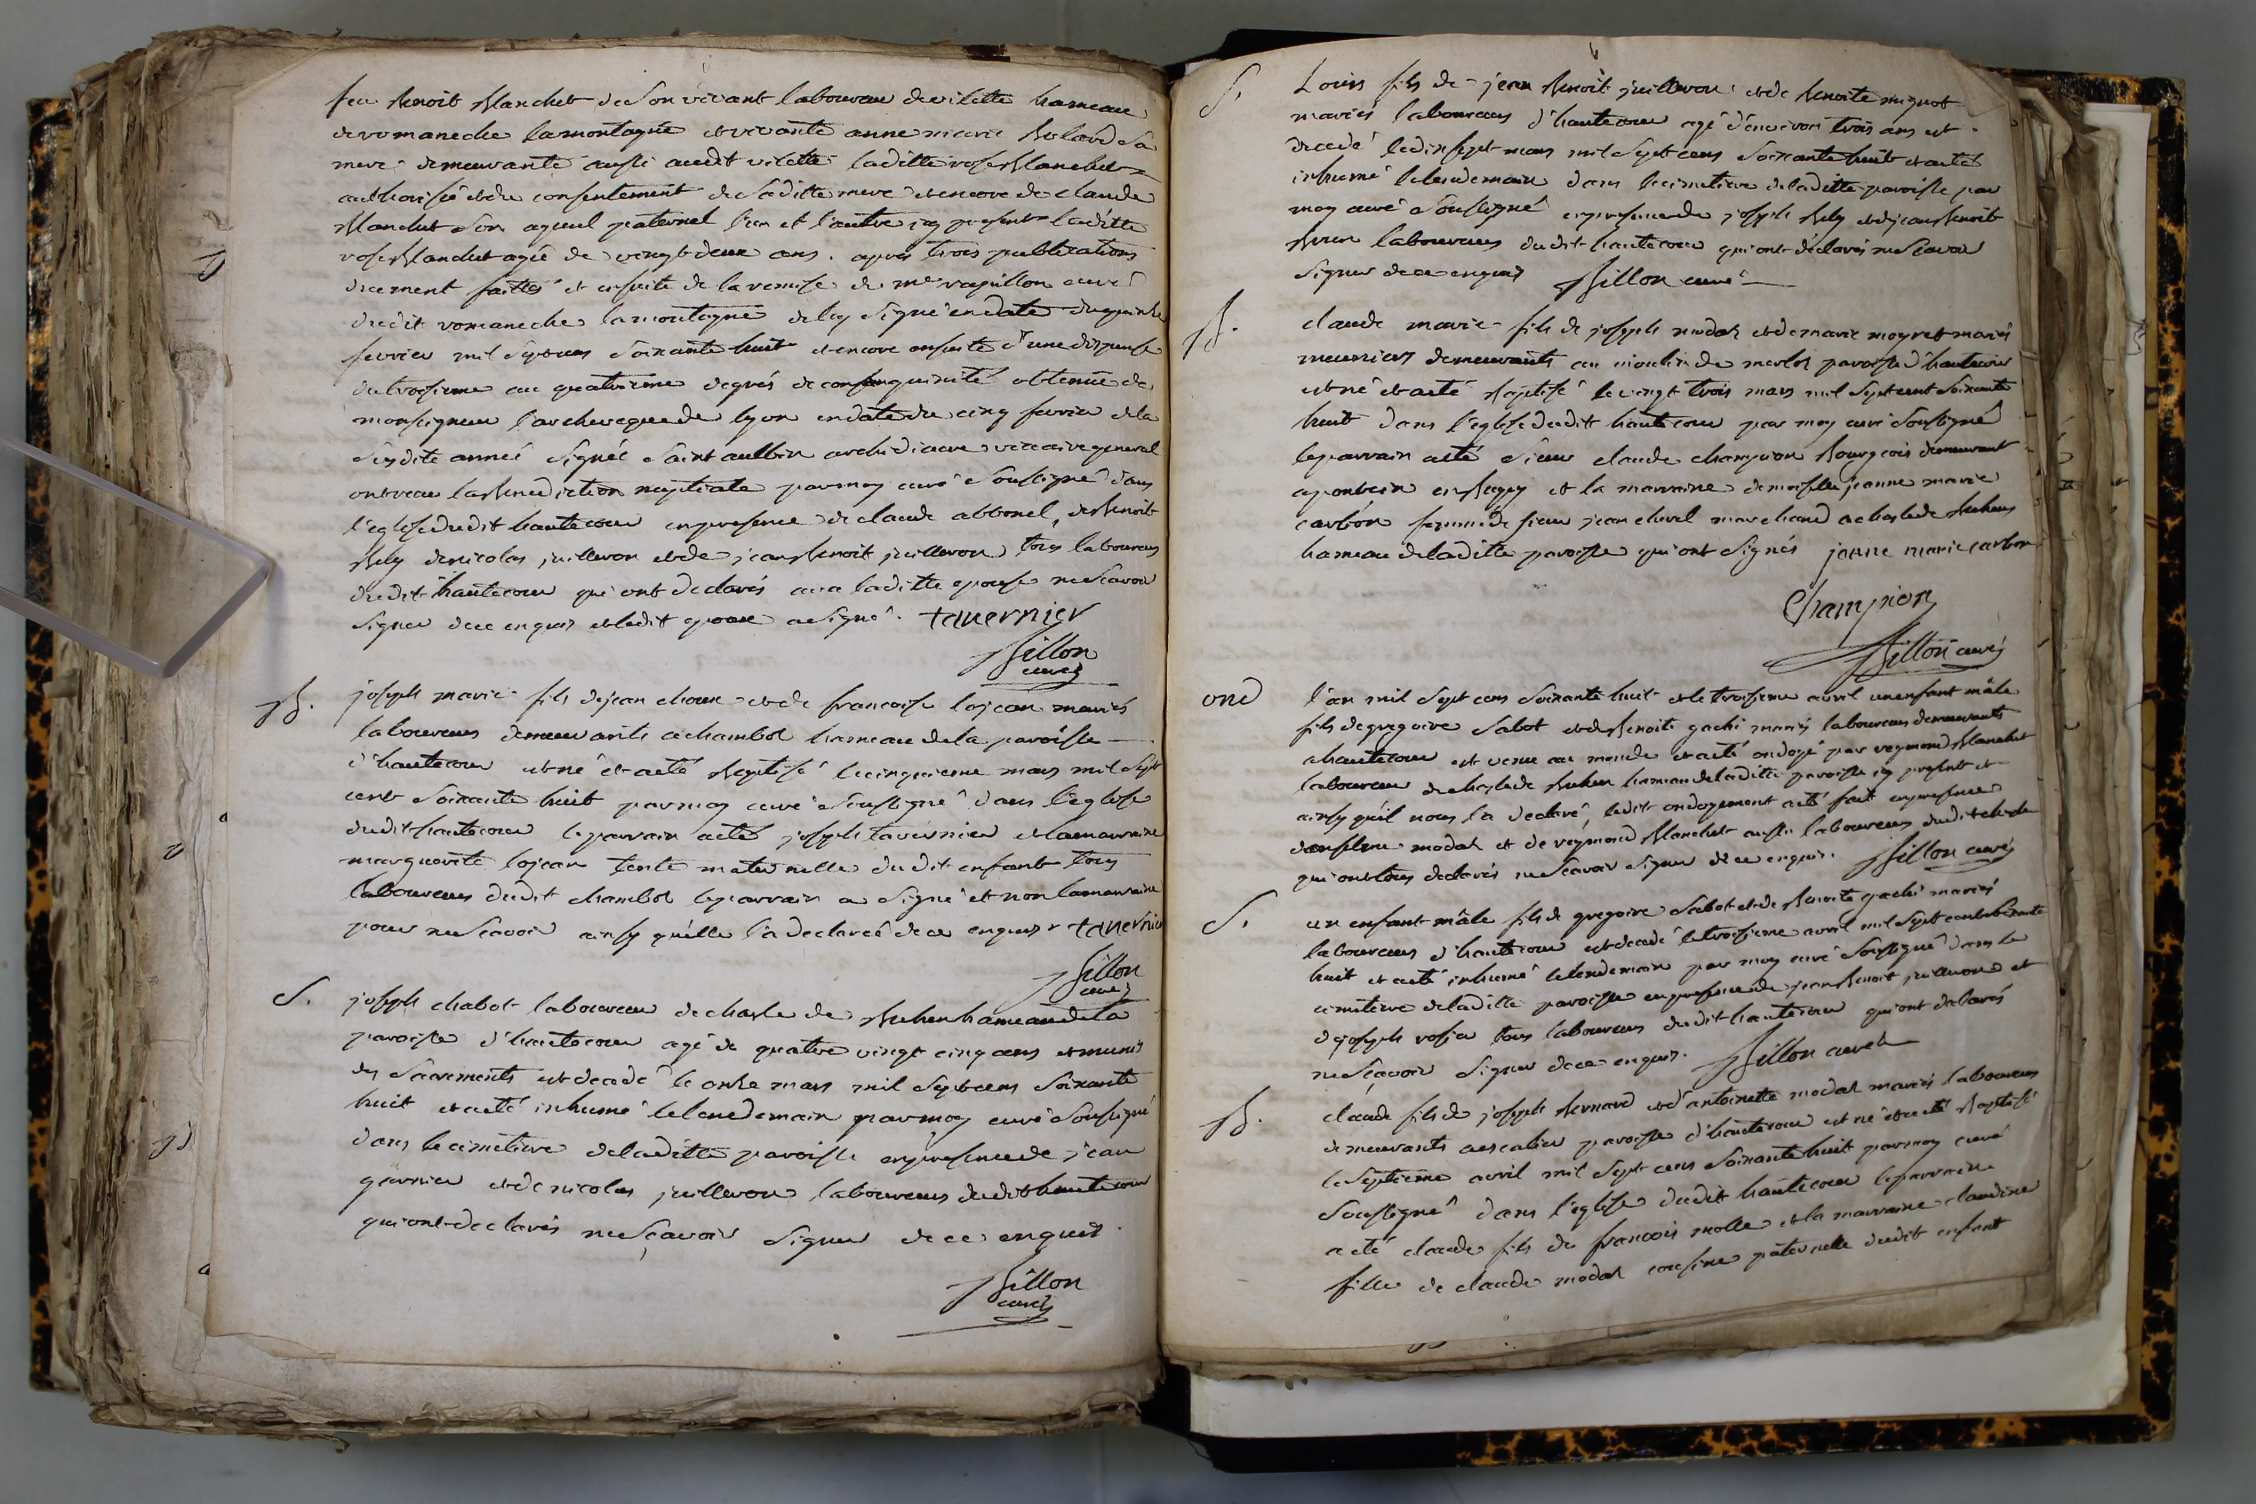 feu benoit blanchet de son vivant laboureur de vilette hameau
de romaneche la montagne et vivante anne marie
mere demeurante aussi audit vilette laditte rose blanchet
authorisée et du consentement de saditte mere et encore de claude
blanchet son ayeul paternel l'un et l'autre icy presents laditte
rose blanchet agée de vingt deux ans. apres trois publications
düement faittes et ensuite de la remise de mr rapillon curé
dudit romaneche la montagne de luy signé en date du quinze
fevrier mil sept cens soixante huit et encore ensuite d'une dispense
du troisieme au quatrieme degrés de consanguinité obtenüe de
monseigneur l'archeveque de lyon en date du cinq fevrier de la
susdite année signée saint aulbin archidiacre viccaire general
ont recu la benediction nuptiale par moy curé soussigné dans
l'eglise dudit hautecour en presence de claude abbonel, de benoit
bely de nicolas juilleron et de jean benoit juilleron tous laboureurs
dudit hautecour qui ont declarés avec laditte epouse ne scavoir
signer de ce enquis et ledit epoux a signé. tavernier
billon
curé
B. joseph marie fils de jean choux et de francoise lojean mariés
laboureurs demeurants a chambod hameau de la paroisse
d'hautecour est né et a eté baptisé le cinquieme mars mil sept
cent soixante huit par moy curé soussigné dans l'eglise
dudit hautecour le parrain a eté joseph tavernier et la marraine
marguerite lojean tente maternelle dudit enfant tous
laboureurs dudit chambod le parrain a signé et non la marraine
pour ne scavoir ainsy qu'elle l'a declarée de ce enquise tavernier
billon
curé
S. joseph chabot laboureur de chasle de buhen hameau de la
paroisse d'hautecour agé de quatre vingt cinq ans et muni
des sacrements est decedé le onze mars mil sept cens soixante
huit et a eté inhumé le lendemain par moy curé soussigné
dans le cimetiere de laditte paroisse en presence de jean
garnier et de nicolas juilleron laboureurs dudit hautecour
qui ont declarés ne sçavoir signer de ce enquis.
billon
curé
S. Louis fils de jean benoit juilleron et de benoite mignot
mariés laboureurs d'hautecour agé d'environ trois ans est
decedé le dix sept mars mil sept cens soixante huit et a eté
inhumé le lendemain dans le cimetiere de laditte paroisse par
moy curé soussigné en presence de joseph bely et de jean benoit
laboureurs dudit hautecour qui ont declarés ne scavoir
signer de ce enquis billon curé
B. claude marie fils de joseph modas et de marie moyret mariés
meuniers demeurants au moulin de merloz paroisse d'hautecour
est né et a eté baptisé le vingt trois mars mil sept cent soixante
huit dans l'eglise dudit hautecour par moy curé soussigné
le parrain a eté sieur claude champion bourgeois demeurant
a pontein en bugey et la marraine demoiselle jeanne marie
carbon femme de sieur jean chevel marchand a chasle de buhens
hameau de laditte paroisse qui ont signés janne marie carbon
Champion
billon curé
ond l'an mil sept cens soixante huit et le troisieme avril un enfant mâle
fils de gregoire sabot et de benoite gachi mariés laboureurs demeurants
a hautecour est venu au monde et a eté ondoyé par reymond blanchet
laboureur de chasle de buhen hameau de laditte paroisse icy present et
ainsy qu'il nous l'a declaré, ledit ondoyement a eté fait en presence
d'anselme modas et de reymond blanchet aussi laboureurs dudit
qui ont tous declarés ne scavoir signer de ce enquis. billon curé
S. un enfant mâle fils de gregoire sabot et de benoite gachi mariés
laboureurs d'hautecour est decedé le troisieme avril mil sept cent soixante
huit et a eté inhumé le lendemain par moy curé soussigné dans le
cimetiere de laditte paroisse en presence de jean benoit juilleron et
de joseph rosier tous laboureurs dudit hautecour qui ont declarés
ne sçavoir signer de ce enquis. billon curé
B. claude fils de joseph bernard et d'antoinette modas mariés laboureurs
demeurants a escalier paroisse d'hautecour est né et a eté baptisé
le septieme avril mil sept cens soixante huit par moy curé
soussigné dans l'eglise dudit hautecour le parrain
a eté claude fils de francois molle et la marraine claudine
fille de claude modas cousine paternelle dudit enfant